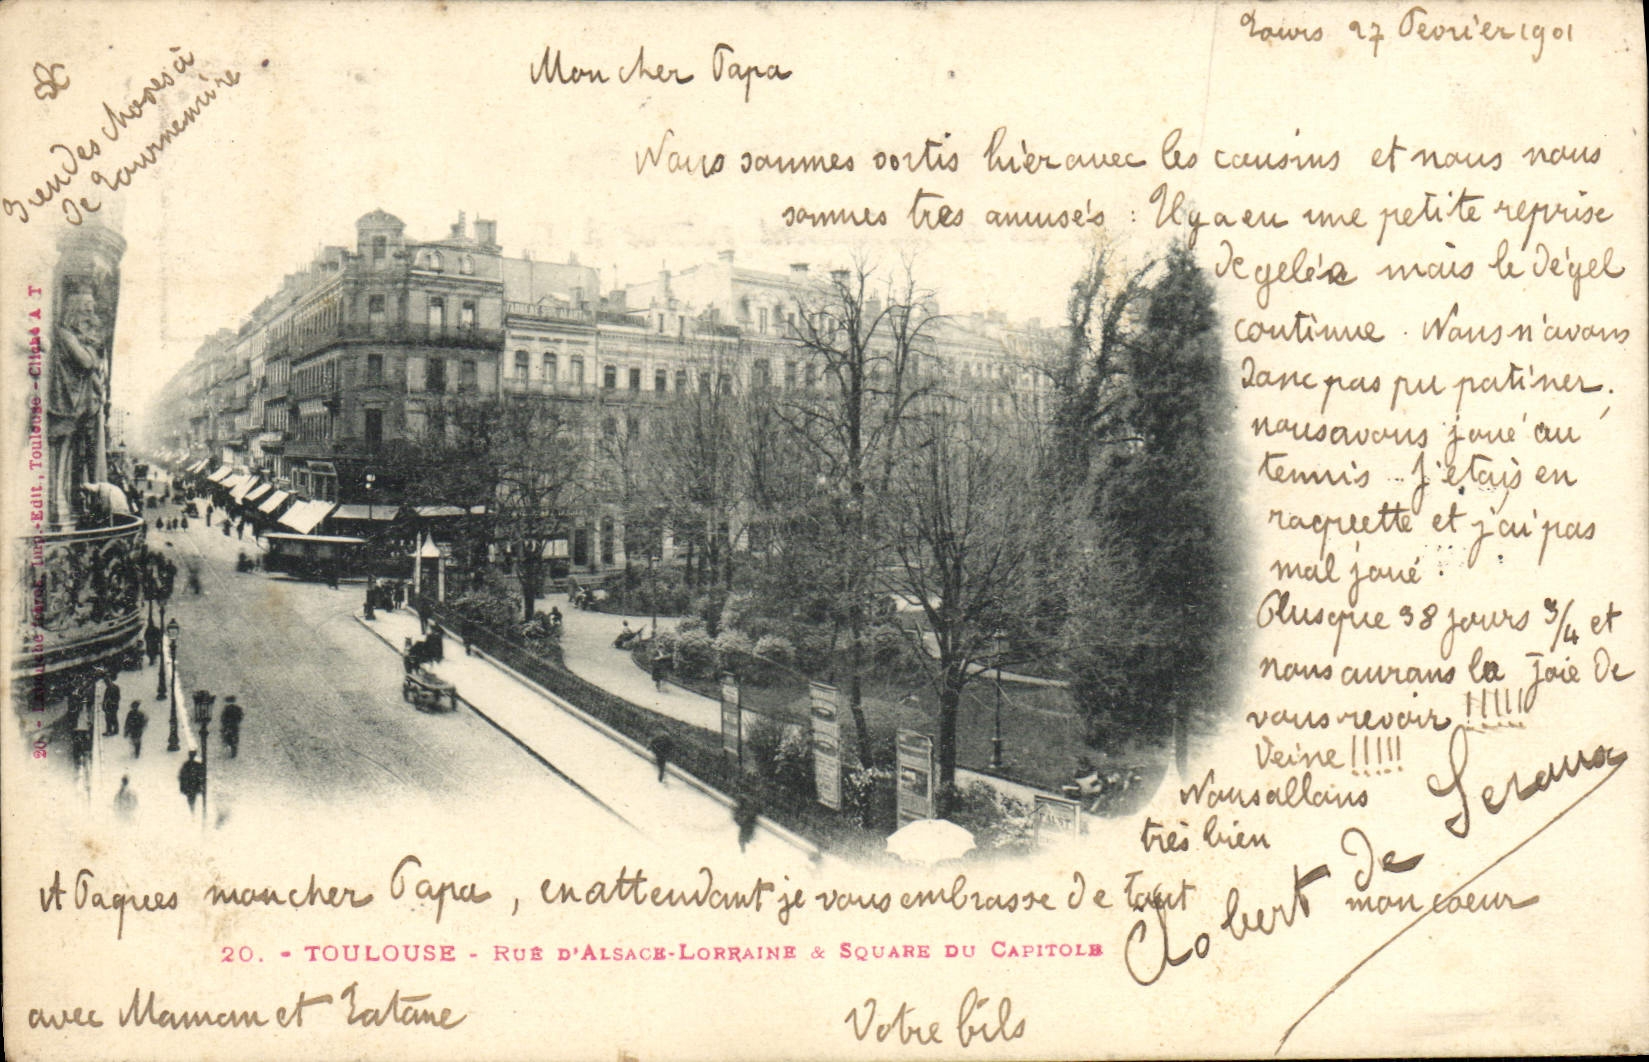 Tours 27 Fevrier 1901
Mon cher Papa
Nous sommes sortis hier avec les cousins et nous nous
sommes très amusés : Il y a eu une petite reprise
de gelée mais le dégel
continue. Nous n'avons
donc pas pu patiner.
nous avons joué au
tennis. J'etais en
raquette et j'ai pas
mal joué.
Plus que 38 jours 3/4 et
nous aurons la joie de
vous revoir !!!!!
Veine !!!!!
Nous allons
très bien
A Paques mon cher Papa, en attendant je vous embrasse de tout
mon coeur
avec Maman et Tatane
Votre fils
Robert de Seroux
des choses à
de Tournemire
20. - TOULOUSE - RUE D'ALSACE-LORRAINE & SQUARE DU CAPITOLE
Imp.-Edit., Toulouse - Cliché A T